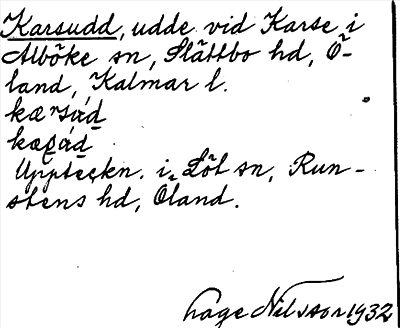 Karsudd, udde vid Karse i
Alböke sn, Slättbo hd, Ö-
land, Kalmar l.
Uppteckn. i Löt sn, Run-
stens hd, Öland.
Nilsson 1932